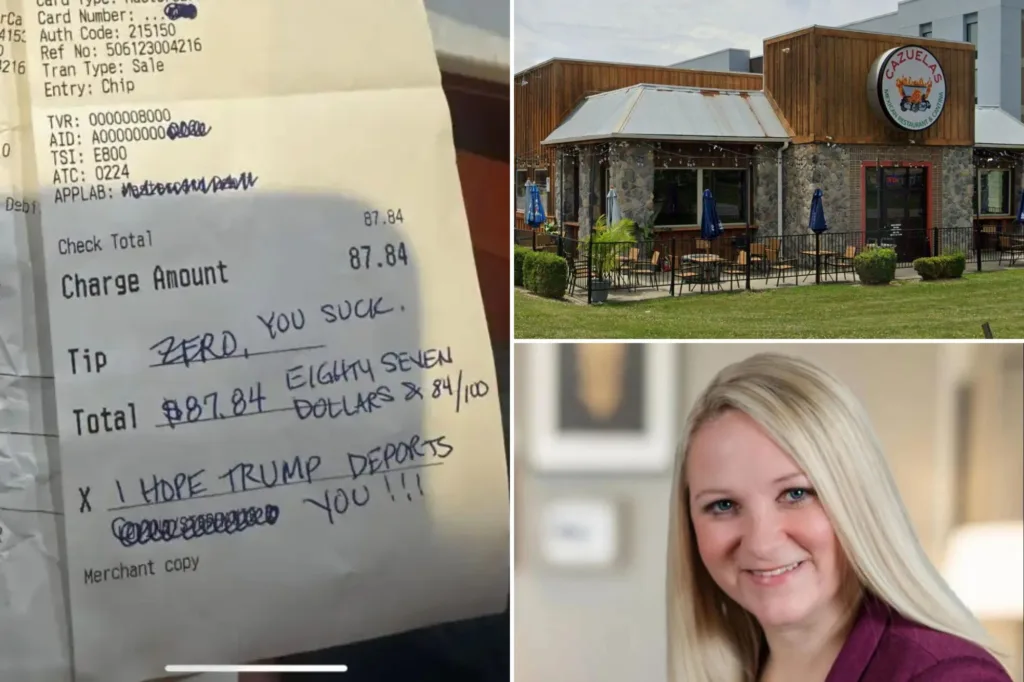 Card Number: ...
Auth Code: 215150
Ref No: 506123004216
Tran Type: Sale
Entry: Chip
TVR: 0000008000
AID: A00000000
TSI: E800
ATC: 0224
APPLAB:
87.84
Check Total
87.84
Charge Amount
Tip ZERO, YOU SUCK.
Total $87.84 EIGHTY SEVEN
DOLLARS & 84/100
X I HOPE TRUMP DEPORTS
YOU !!!
Merchant copy
4216
0
Debi
CAZUELAS
MEXICAN RESTAURANT & CANTINA